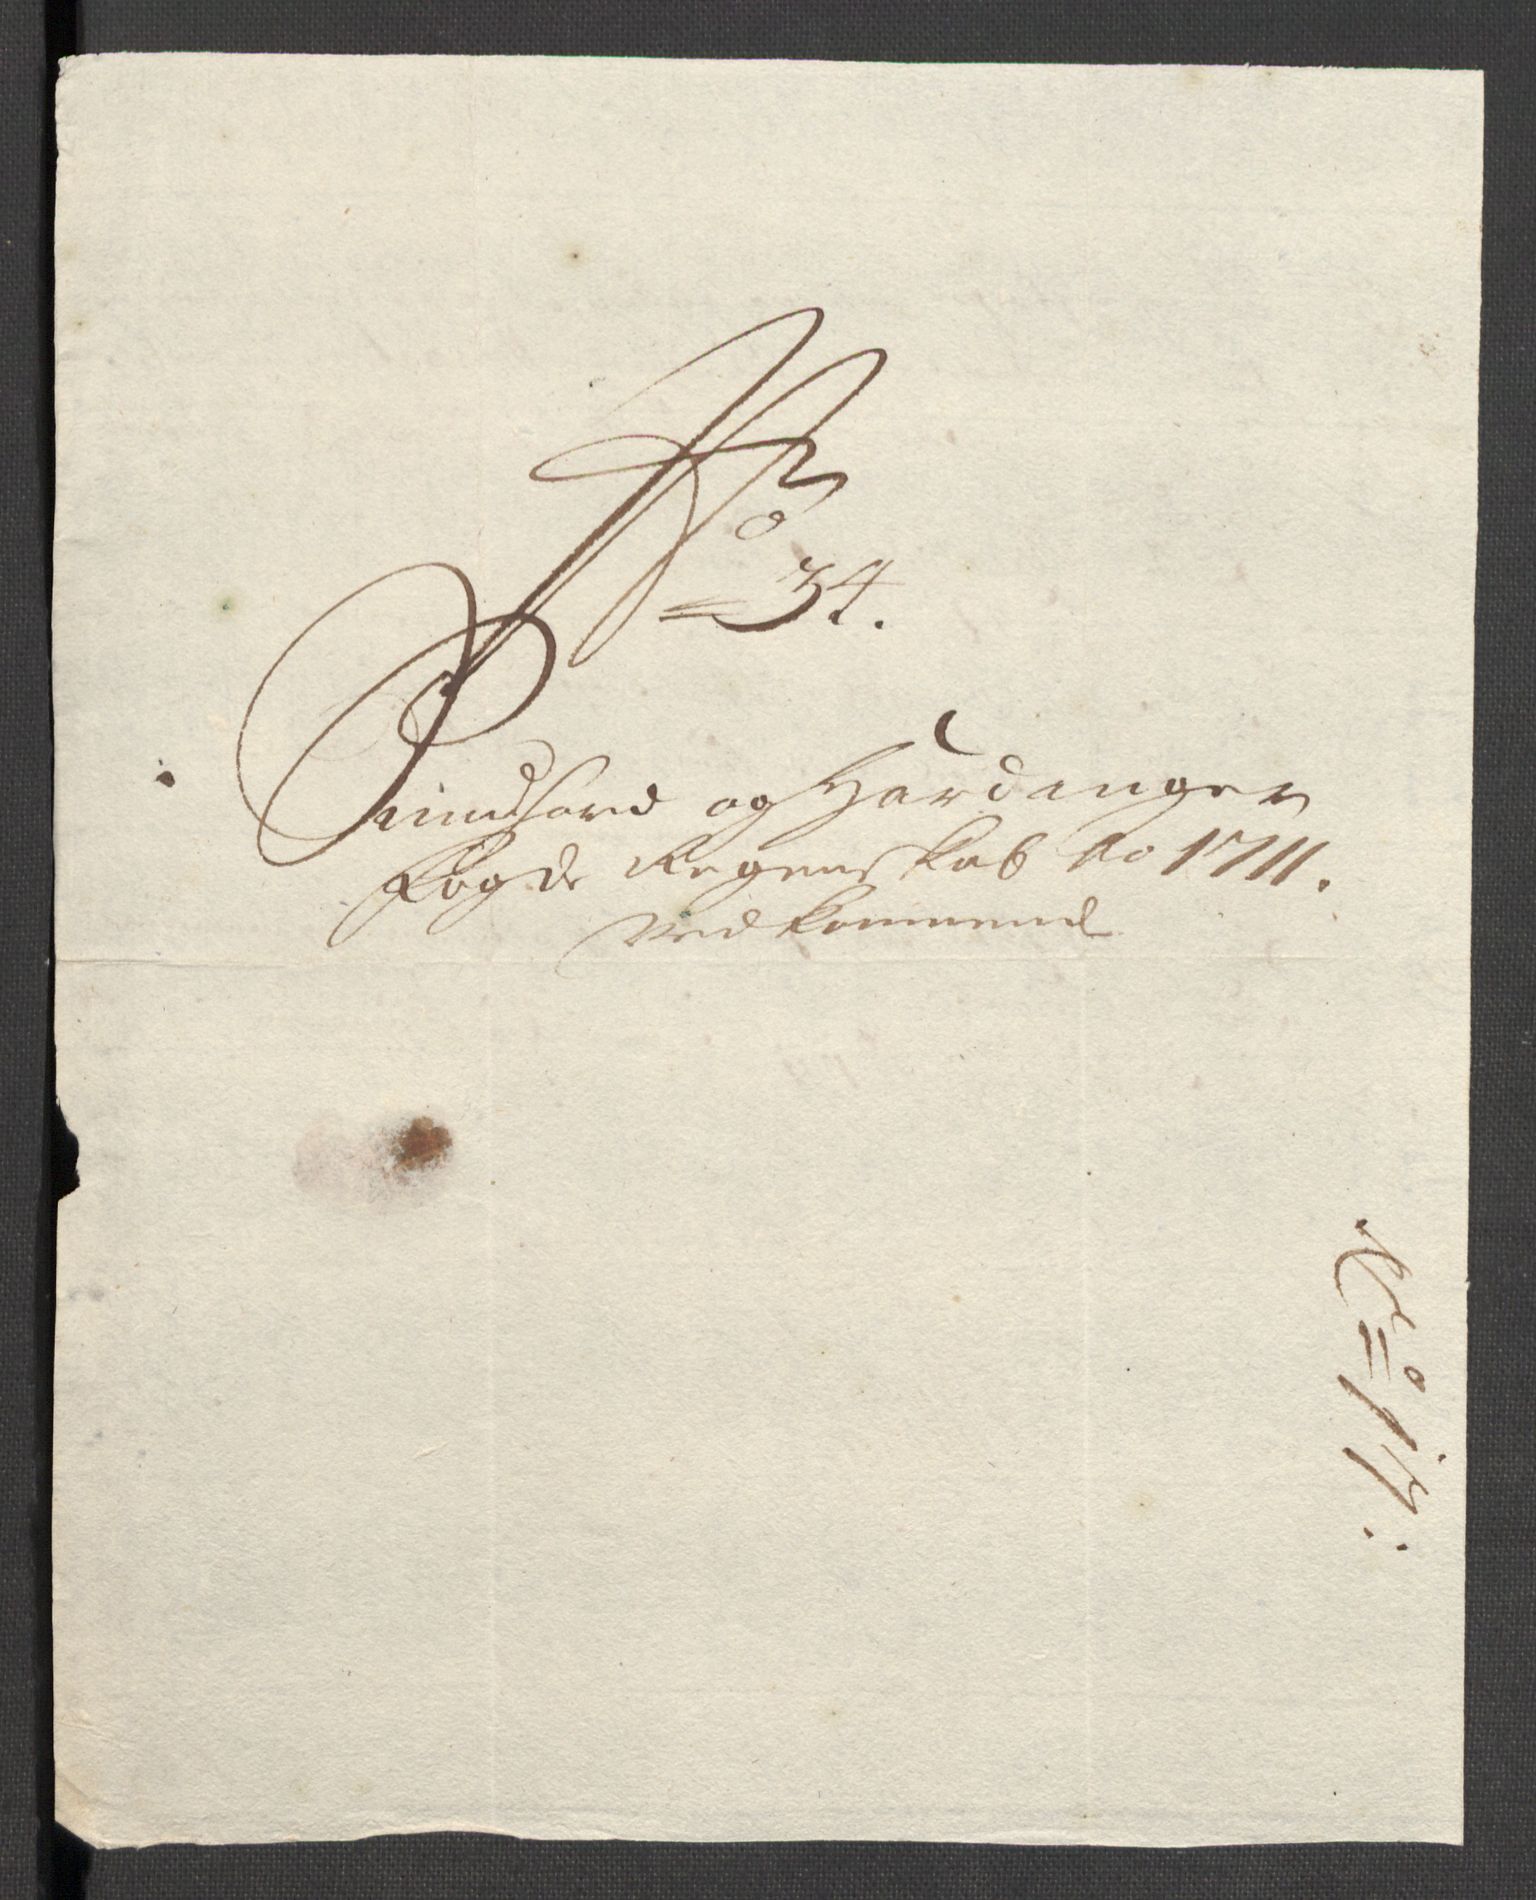 No
34.
Sundhord og Hardanger
Fogde Regenskab Ao 1711.
Vedkommend
No 17.